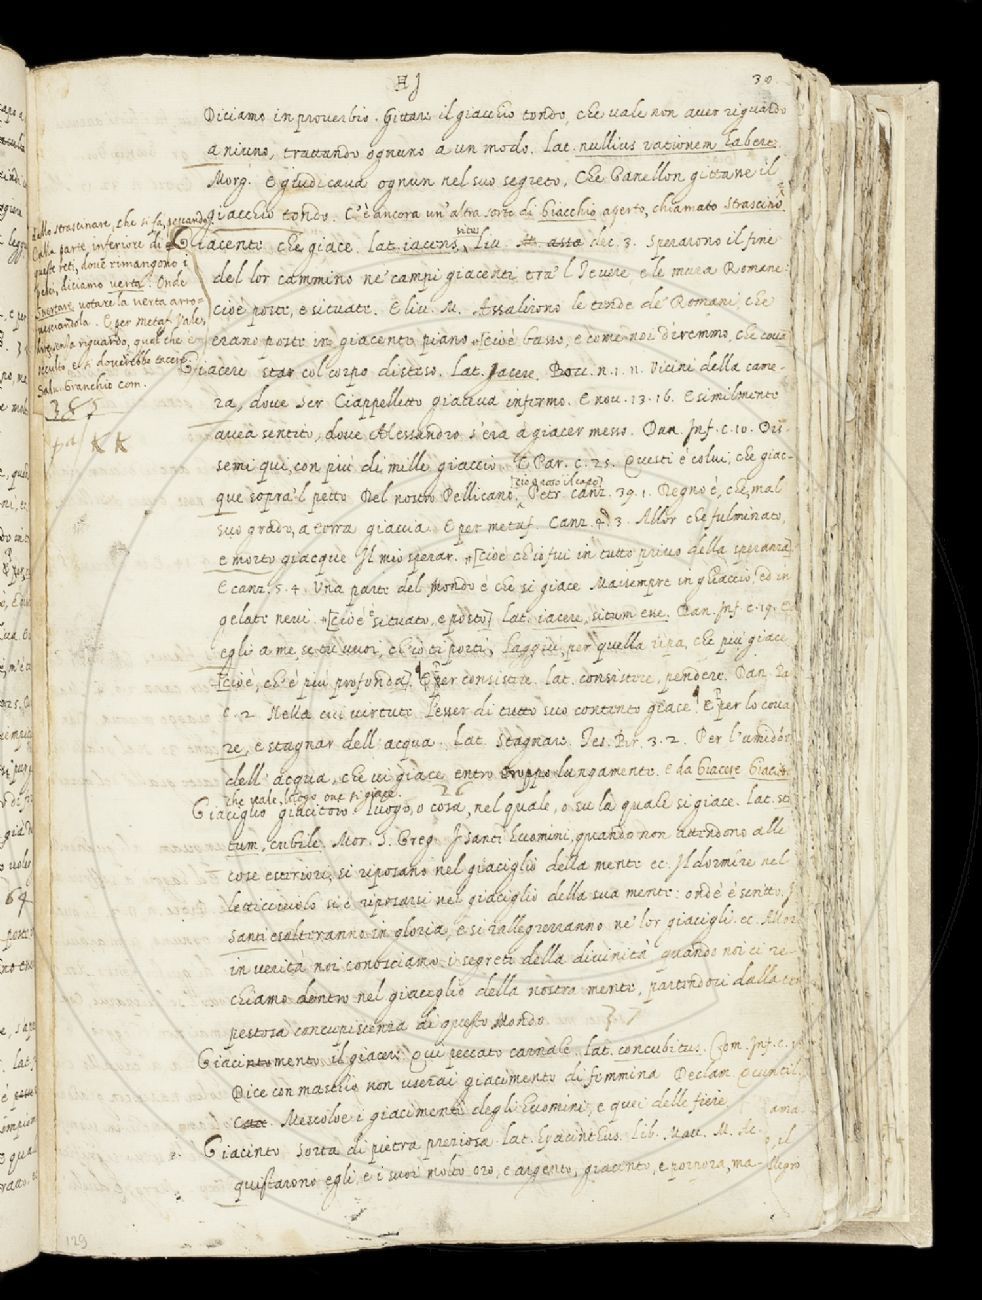 HJ
39
Diciamo in proverbio. Gittare il giacchio tondo, che vale non aver riguardo
a niuno, trattando ognuno a un modo. Lat. nullius rationem habere.
Morg. E giudicava ognun nel suo segreto, Che Ganellon gittane il
giacchio tondo. C'è ancora un'altra sorte di Giacchio aperto, chiamato strascino.
Giacente che giace. Lat. iacens, situs, Liv. dec. 3. Sperarono il fine
del lor cammino ne' campi giacenti tra 'l Tevere, e le mura Romane:
cioè poste, e situate. E Liv. M. Assalirono le tende de' Romani, che
erano poste in giacente piano [cioè basso, e come noi diremmo, che cova
Giacere star col corpo disteso. Lat. Jacere. Bocc. n. 1. n. Vicini della came-
ra, dove Ser Ciappelletto giaceva infermo. E nov. 13. 16. E similmente
avea sentito, dove Alessandro s'era a giacer messo. Dan. Inf. c. 10. Dis-
semi qui, con più di mille giaccio. E Par. c. 25. Questi è colui, che giac-
que sopra 'l petto Del nostro Pellicano, Petr. canz. 39. 1. Regno è, che mal
suo grado, a terra giaccia. E per metaf. Canz. 4. 3. Allor che fulminato,
e morto giacque Il mio sperar. [cioè ch'io fui in tutto privo della speranza]
E canz. 5. 4. Una parte del mondo è che si giace Maisempre in ghiaccio, ed in
gelate nevi. [cioè situato, e posto] Lat. iacere, situm esse. Dan. Inf. c. 19. E
egli a me, se tu vuoi, ch'io ti porti, Laggiù, per quella ripa, che più giace
[cioè, ch'è più profonda]. E per consistere. Lat. consistere, pendere. Dan. Pa
c. 2. Nella cui virtute L'esser di tutto suo contento giace. E per lo cova
re, e stagnar dell'acqua. Lat. Stagnare. Tes. Br. 3. 2. Per l'umidor
dell'acqua, che vi giace entro troppo lungamente. e da Giacere Giacitoio
che vale, luogo ove si giace. 26
Giaciglio giacitoio Luogo, o cosa, nel quale, o su la quale si giace. Lat. stra
tum, cubile. Mor. S. Greg. I Santi Uomini, quando non attendono alle
cose esteriori, si riposano nel giaciglio della mente ec. Il dormire nel
letticciuolo si è riposarsi nel giaciglio della sua mente: ond'è scritto. I
Santi esulteranno in gloria, e si rallegreranno ne' lor giacigli. ec. Allora
in verità noi conosciamo i segreti della divinità quando noi ci re
chiamo dentro nel giaciglio della nostra mente, partendoci dalla tem
pestosa concupiscenza di questo Mondo. 27
Giacimento il giacere. Qui peccato carnale. Lat. concubitus. Com. Inf. c.
Dice con maschio non userai giacimento di femmina. Declam. Quintil.
Mescoloe i giacimenti degli Uomini, e quei delle fiere
Giacinto Sorta di pietra preziosa. Lat. Hyacinthus. Lib. Macc. M. Ac-
quistarono egli, e i suoi molto oro, e argento, giacinto, e porpora, ma-
Nello strascinare, che si fa, pescando,
Dalla parte inferiore di
queste reti, dove rimangono i
pesci, diciamo verta. Onde
Svertare, votare la verta arro-
vesciandola. E per metaf. vale
dir senza riguardo, quel che è
occulto, e si doverebbe tacere.
Salv. Granchio com.
385
KK
129